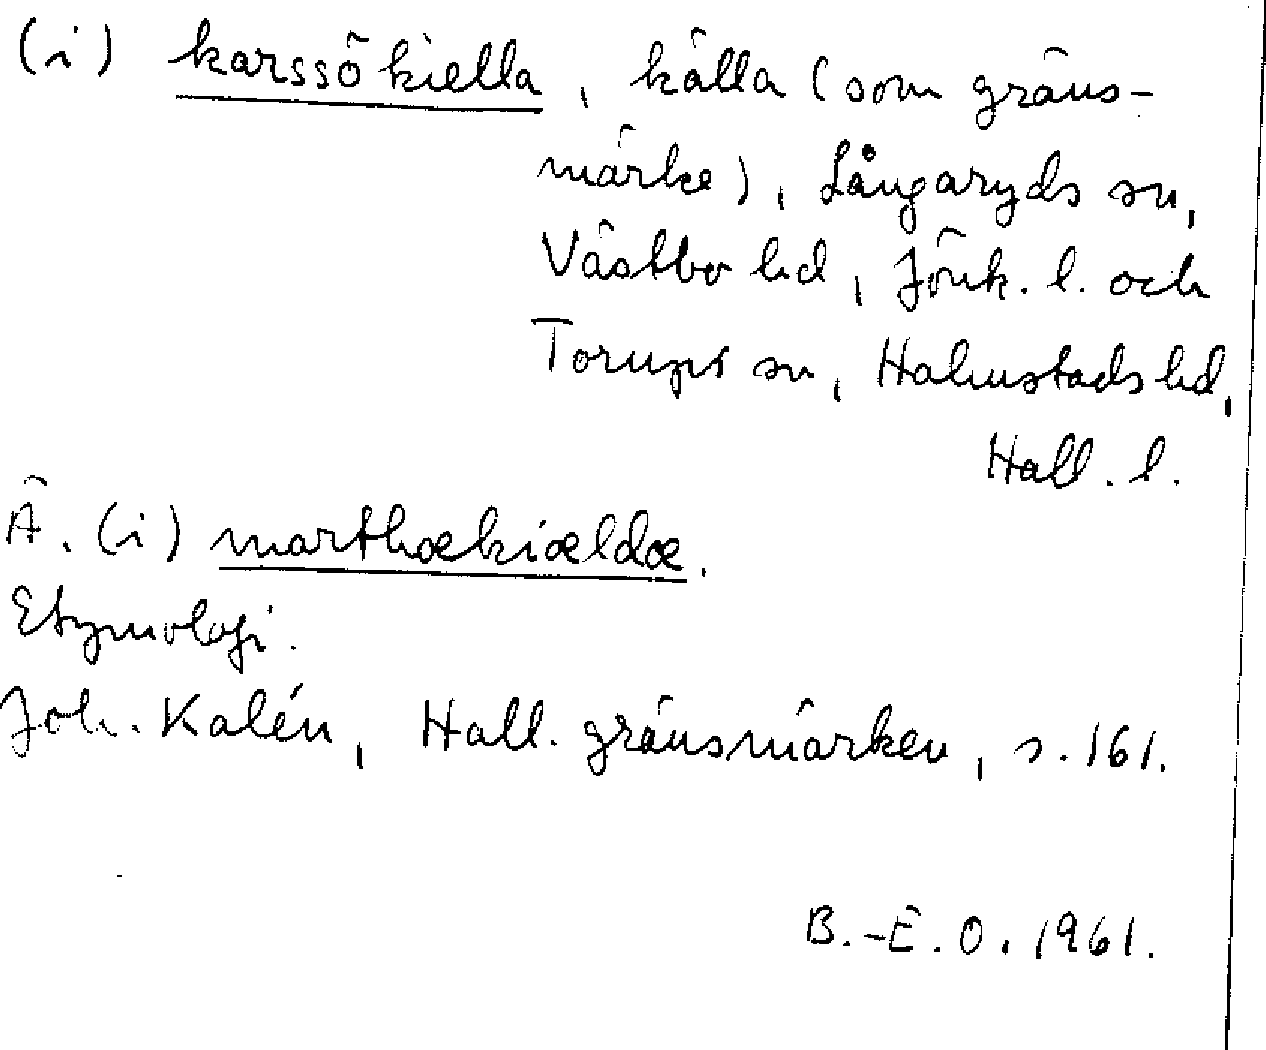 (i) karssö kiella, källa (som gräns-
märke), Långaryds sn,
Västbo hd, Jönk. l. och
Torups sn, Halmstads hd,
Hall. l.
Ä. (i) marthækiældæ.
Etymologi.
Joh. Kalén, Hall. gränsmärken, s. 161.
B.-E. O. 1961.